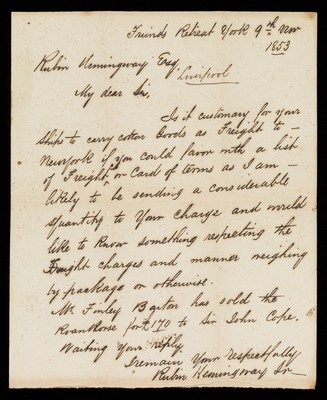 Friends Retreat York 9th Nov
1853
Rubin Hemingway Esq
Liverpool
My dear Sir,
Is it customary for your
Ships to carry cotton Goods as Freight to –
Newyork if you could favor with a list
of Freight or Card of terms as I am –
likely to be sending a considerable
quantity to Your Charge and would
like to Know something respecting the
Freight charges and manner weighing
by package or otherwise.
Mr Finley Barton has sold the
Roan Horse for £170 to Sir John Cope.
Waiting Your reply
I remain Your respectfully
Rubin Hemingway Sr